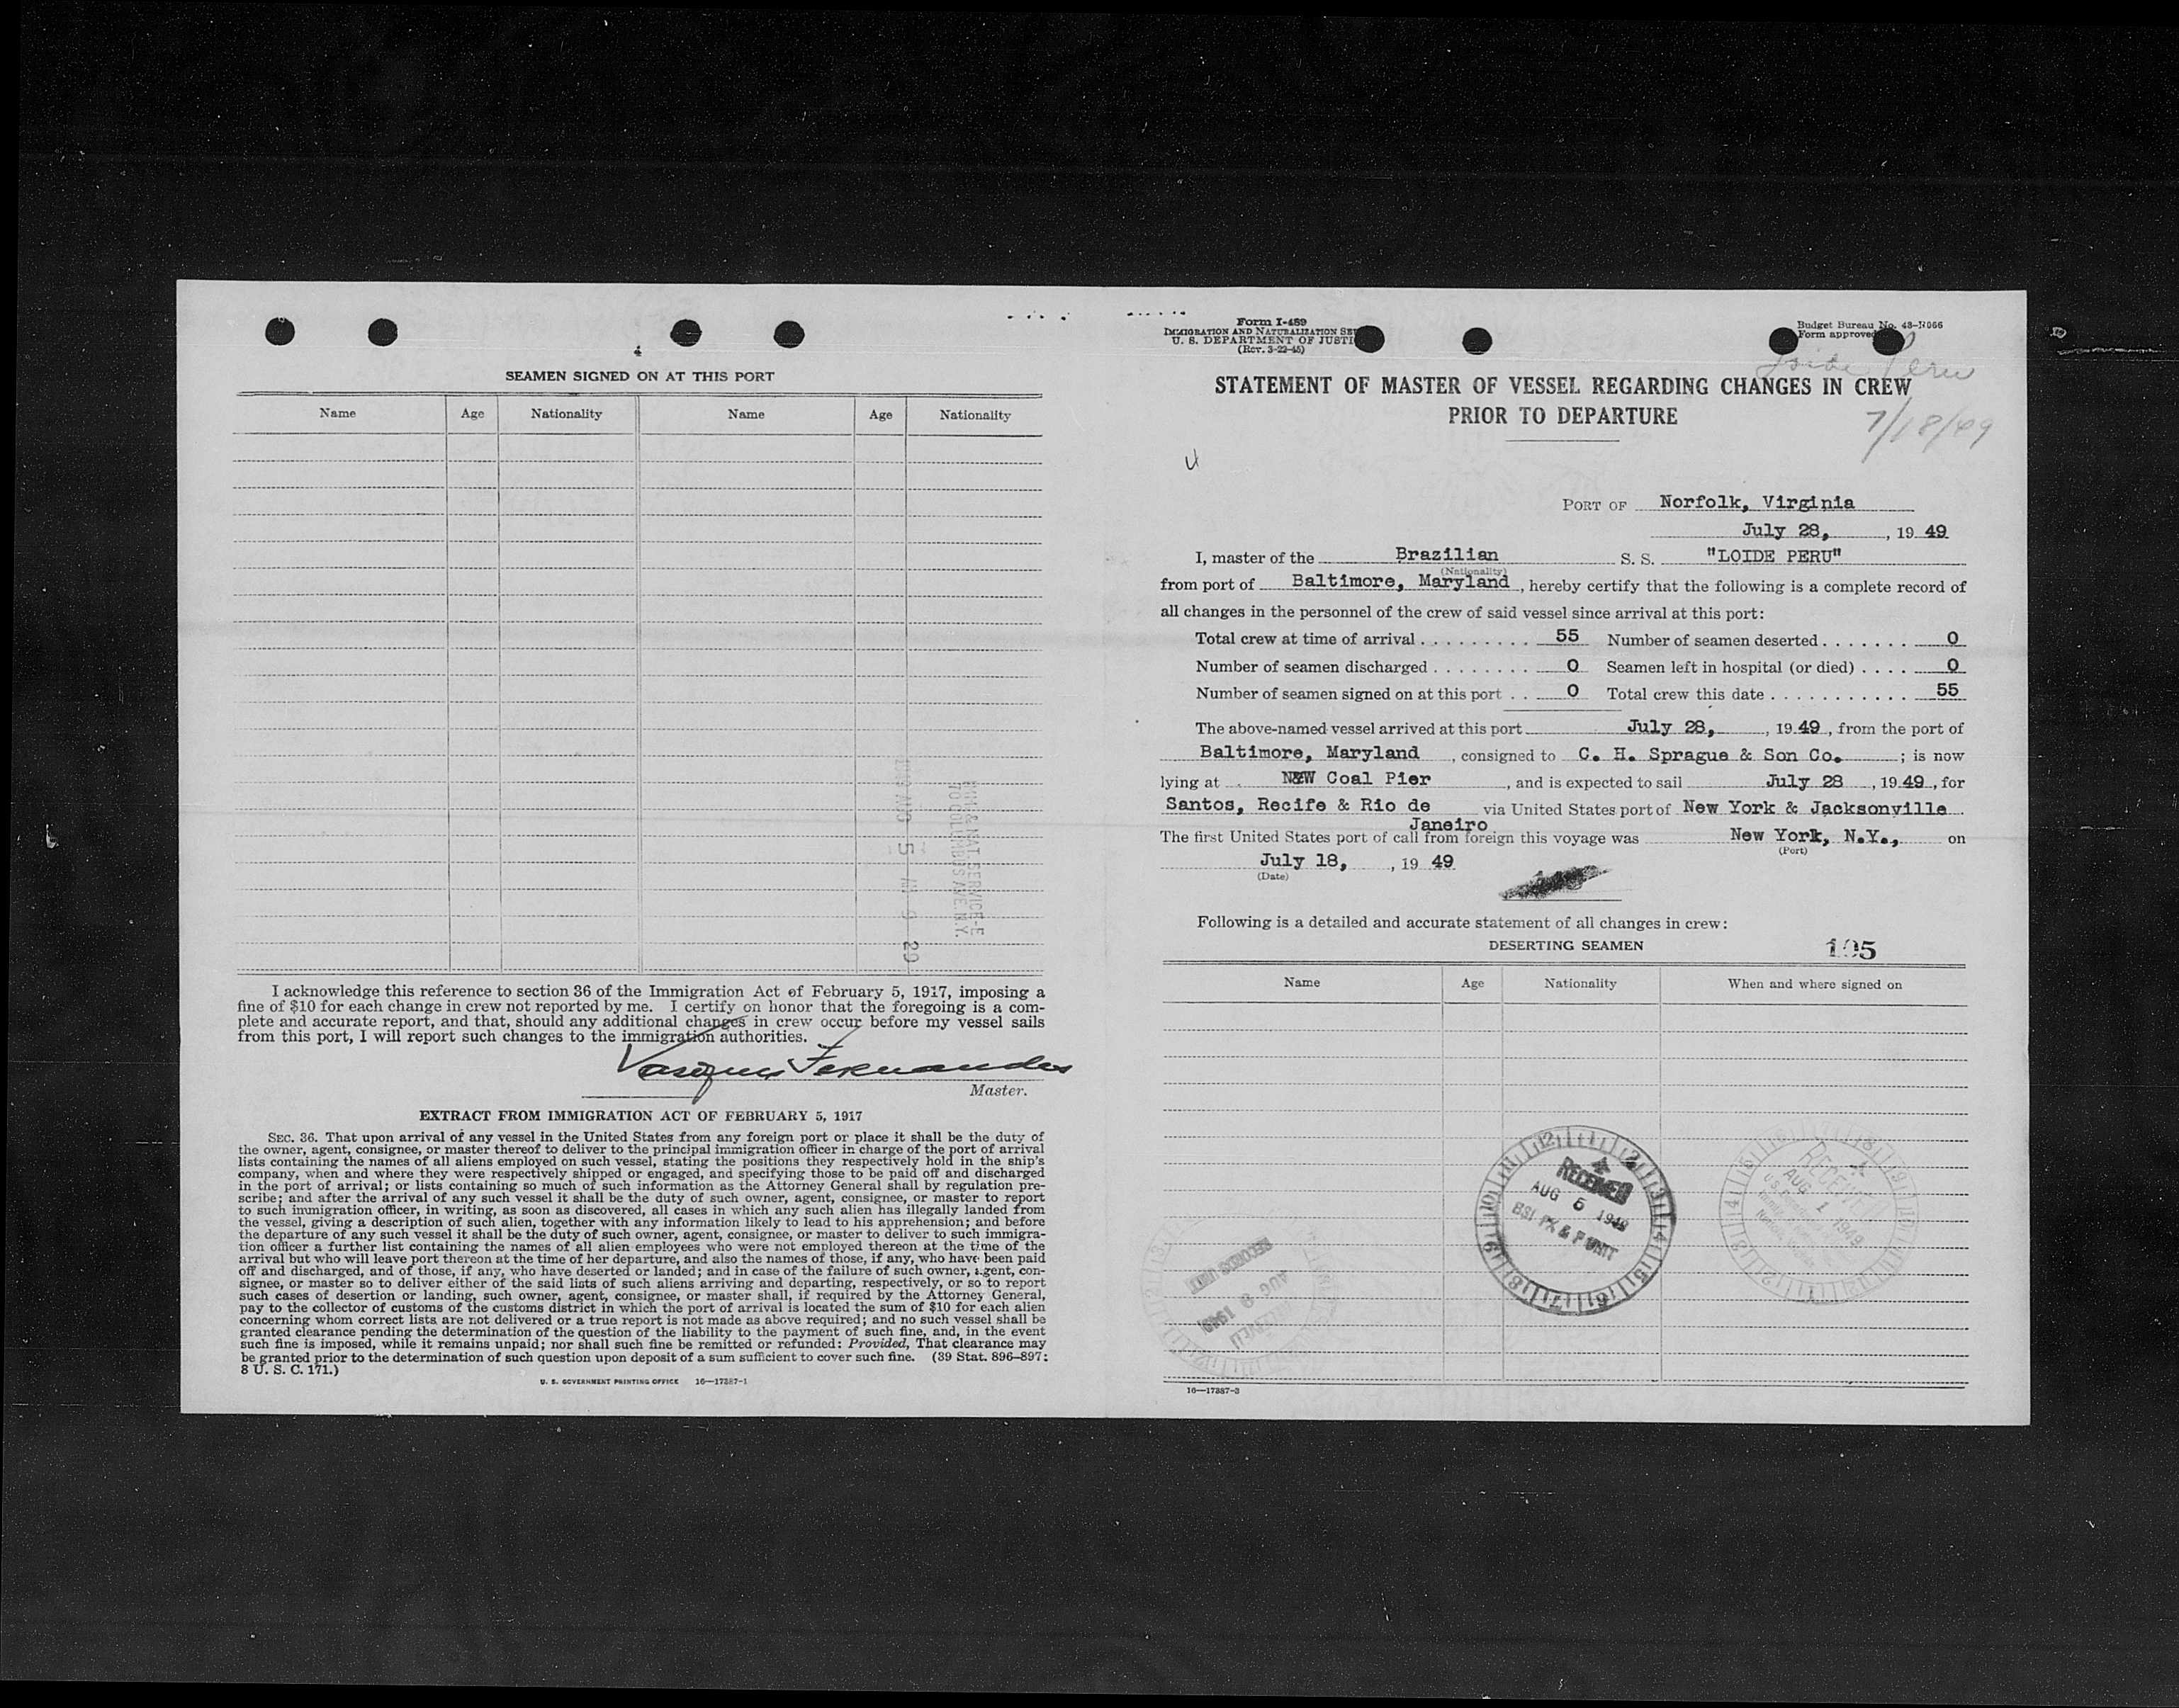 4
SEAMEN SIGNED ON AT THIS PORT
Name Age Nationality Name Age Nationality
IMM & NAT. SERVICE-E
70 COLUMBUS AVE. N.Y.
I acknowledge this reference to section 36 of the Immigration Act of February 5, 1917, imposing a
fine of $10 for each change in crew not reported by me. I certify on honor that the foregoing is a com-
plete and accurate report, and that, should any additional changes in crew occur before my vessel sails
from this port, I will report such changes to the immigration authorities.
Fernandes
Master.
EXTRACT FROM IMMIGRATION ACT OF FEBRUARY 5, 1917
SEC. 36. That upon arrival of any vessel in the United States from any foreign port or place it shall be the duty of
the owner, agent, consignee, or master thereof to deliver to the principal immigration officer in charge of the port of arrival
lists containing the names of all aliens employed on such vessel, stating the positions they respectively hold in the ship's
company, when and where they were respectively shipped or engaged, and specifying those to be paid off and discharged
in the port of arrival; or lists containing so much of such information as the Attorney General shall by regulation pre-
scribe; and after the arrival of any such vessel it shall be the duty of such owner, agent, consignee, or master to report
to such immigration officer, in writing, as soon as discovered, all cases in which any such alien has illegally landed from
the vessel, giving a description of such alien, together with any information likely to lead to his apprehension; and before
the departure of any such vessel it shall be the duty of such owner, agent, consignee, or master to deliver to such immigra-
tion officer a further list containing the names of all alien employees who were not employed thereon at the time of the
arrival but who will leave port thereon at the time of her departure, and also the names of those, if any, who have been paid
off and discharged, and of those, if any, who have deserted or landed; and in case of the failure of such owner, agent, con-
signee, or master so to deliver either of the said lists of such aliens arriving and departing, respectively, or so to report
such cases of desertion or landing, such owner, agent, consignee, or master shall, if required by the Attorney General,
pay to the collector of customs of the customs district in which the port of arrival is located the sum of $10 for each alien
concerning whom correct lists are not delivered or a true report is not made as above required; and no such vessel shall be
granted clearance pending the determination of the question of the liability to the payment of such fine, and, in the event
such fine is imposed, while it remains unpaid; nor shall such fine be remitted or refunded: Provided, That clearance may
be granted prior to the determination of such question upon deposit of a sum sufficient to cover such fine. (39 Stat. 896–897;
8 U. S. C. 171.)
U. S. GOVERNMENT PRINTING OFFICE 16—17387-1
Form I-489
IMMIGRATION AND NATURALIZATION SE
U. S. DEPARTMENT OF JUSTI
(Rev. 3-22-45)
Budget Bureau No. 43-R066
Form approved
Loide Peru
STATEMENT OF MASTER OF VESSEL REGARDING CHANGES IN CREW
PRIOR TO DEPARTURE
7/18/49
PORT OF Norfolk, Virginia
July 28, , 19 49
I, master of the Brazilian S. S. "LOIDE PERU"
(Nationality)
from port of Baltimore, Maryland , hereby certify that the following is a complete record of
all changes in the personnel of the crew of said vessel since arrival at this port:
Total crew at time of arrival . . . . . . . . . 55 Number of seamen deserted . . . . . . . 0
Number of seamen discharged . . . . . . . . 0 Seamen left in hospital (or died) . . . . 0
Number of seamen signed on at this port . . 0 Total crew this date . . . . . . . . . . . . 55
The above-named vessel arrived at this port July 28, , 19 49 , from the port of
Baltimore, Maryland , consigned to C. H. Sprague & Son Co. ; is now
lying at N&W Coal Pier , and is expected to sail July 28 , 19 49 , for
Santos, Recife & Rio de via United States port of New York & Jacksonville .
Janeiro
The first United States port of call from foreign this voyage was New York, N.Y., on
(Port)
July 18, , 19 49
(Date)
Following is a detailed and accurate statement of all changes in crew:
DESERTING SEAMEN 105
Name Age Nationality When and where signed on
RECEIVED
AUG 5 1949
BSI PX & P UNIT
RECEIVED
AUG 1 1949
RECORDS UNIT
AUG 8 1949
RECEIVED
16—17387-3